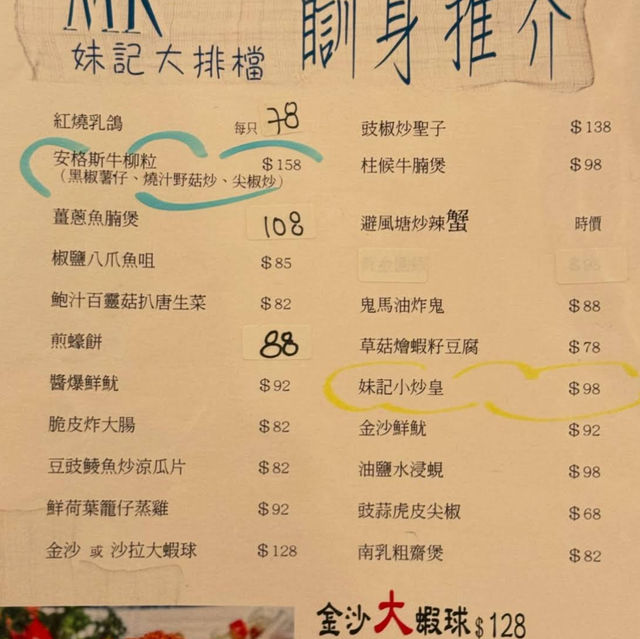 MK
妹記大排檔
瞓身推介
紅燒乳鴿 每只 78
安格斯牛柳粒 $158
（黑椒薯仔、燒汁野菇炒、尖椒炒）
薑蔥魚腩煲 108
椒鹽八爪魚咀 $85
鮑汁百靈菇扒唐生菜 $82
煎蠔餅 88
醬爆鮮魷 $92
脆皮炸大腸 $82
豆豉鯪魚炒涼瓜片 $82
鮮荷葉籠仔蒸雞 $92
金沙 或 沙拉大蝦球 $128
豉椒炒聖子 $138
柱候牛腩煲 $98
避風塘炒辣蟹 時價
鬼馬油炸鬼 $88
草菇燴蝦籽豆腐 $78
妹記小炒皇 $98
金沙鮮魷 $92
油鹽水浸蜆 $98
豉蒜虎皮尖椒 $68
南乳粗齋煲 $82
金沙大蝦球 $128